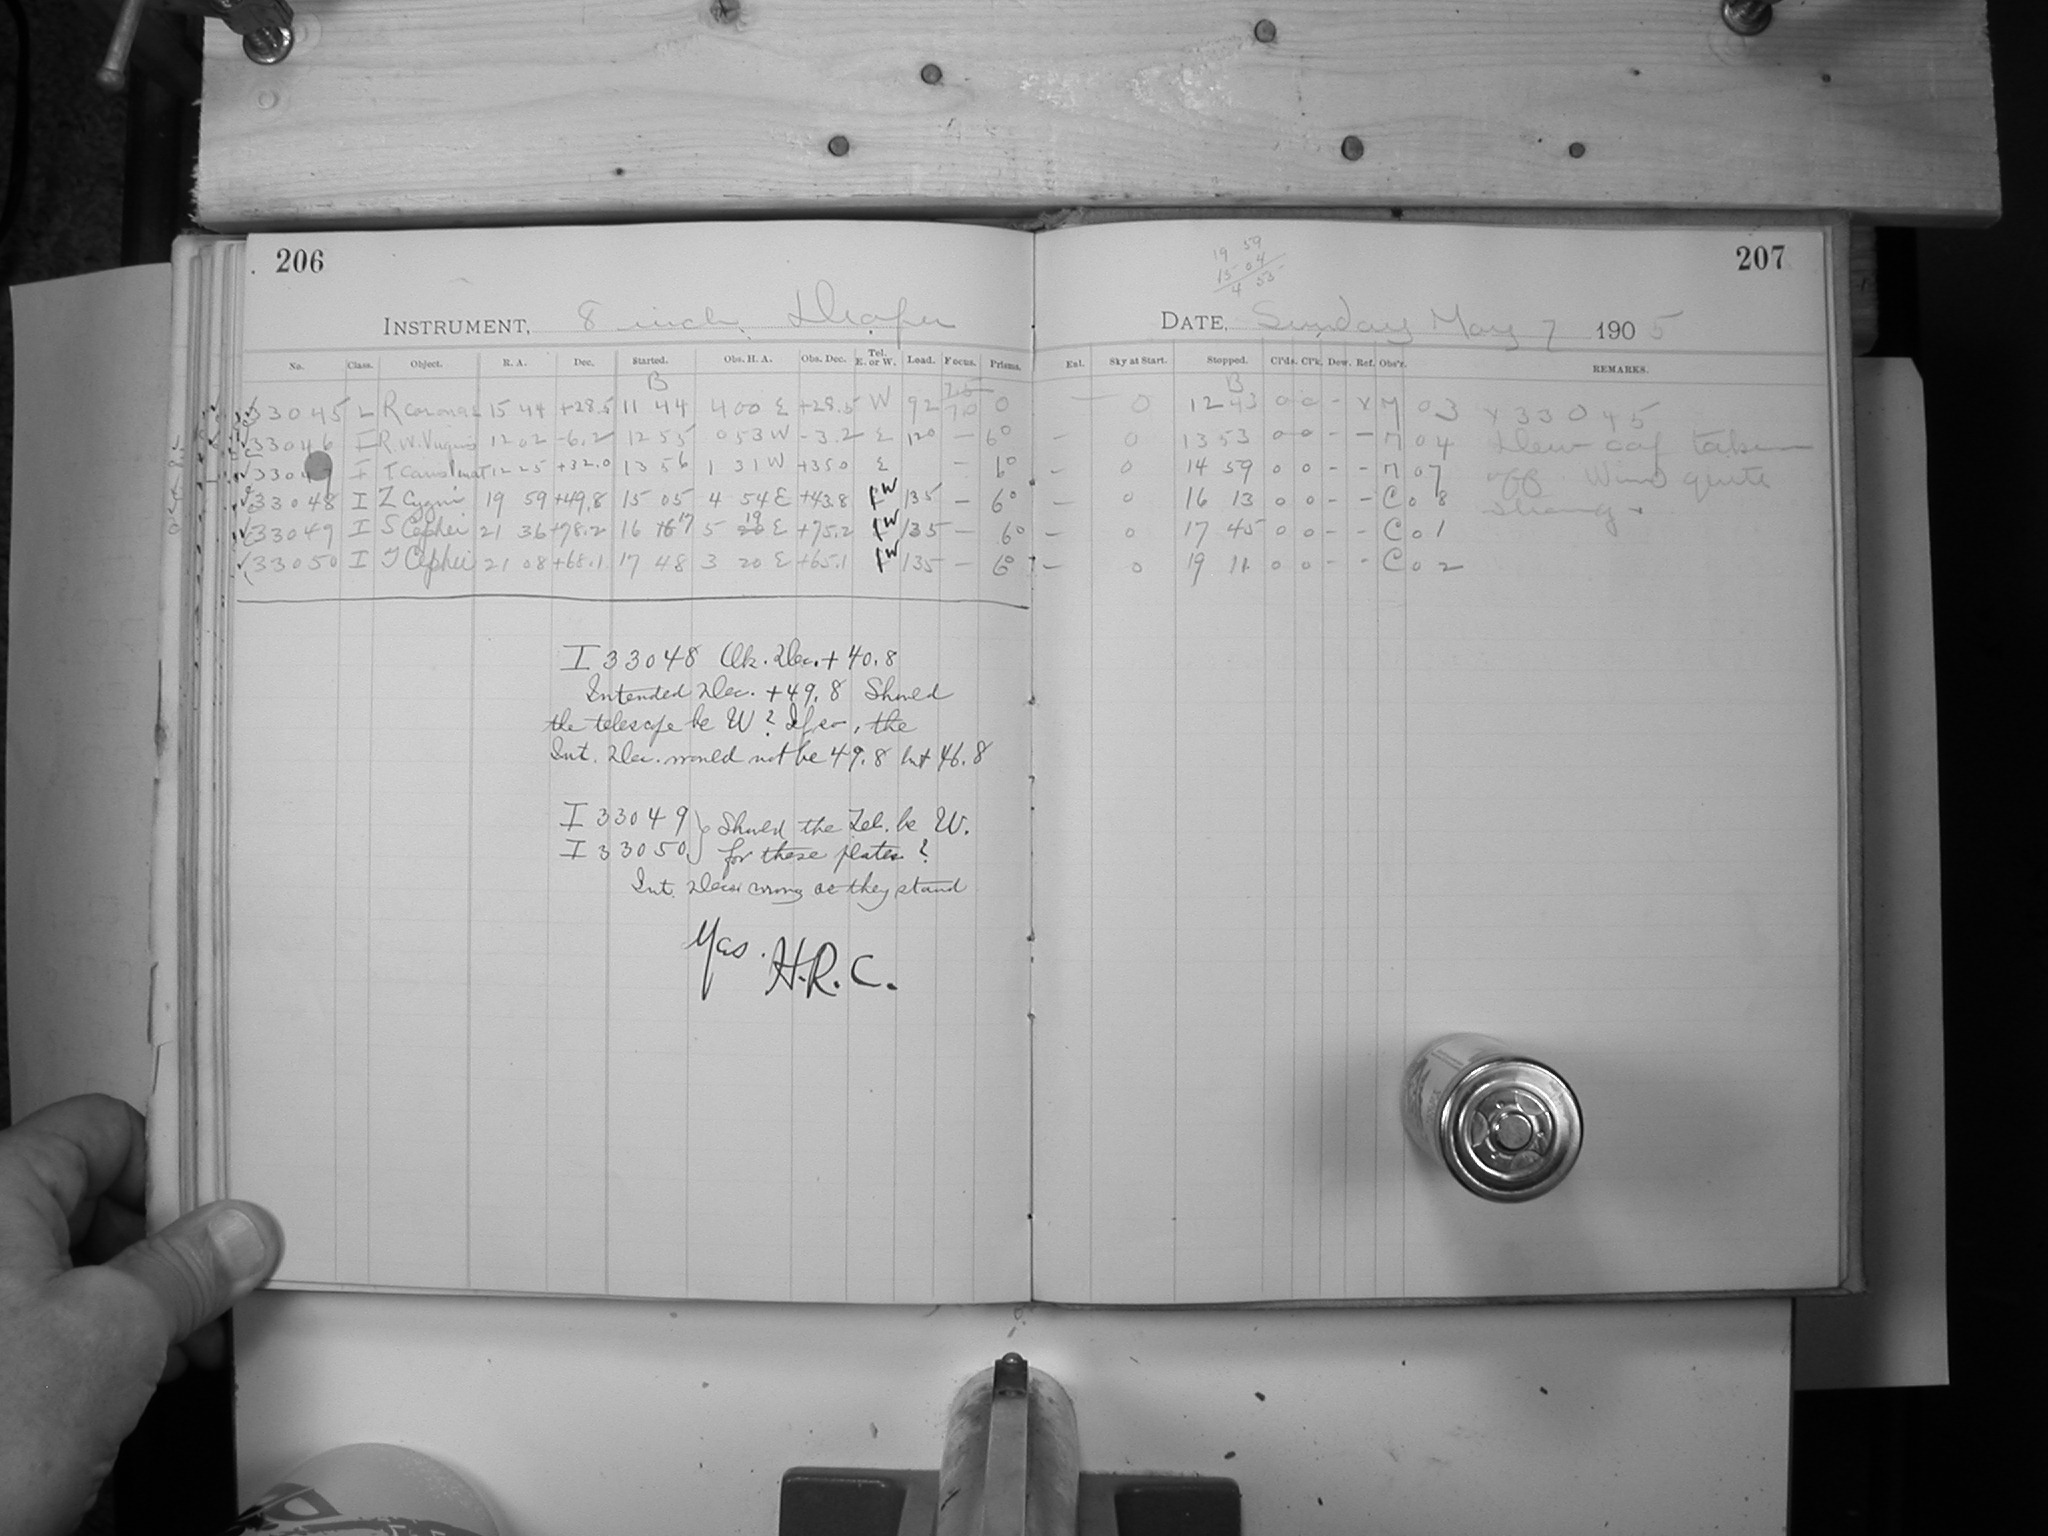 206
INSTRUMENT, 8 inch Draper
No. Class. Object. R. A. Dec. Started. Obs. H. A. Obs. Dec. Tel. E. or W. Load. Focus. Prisms.
B
33045 L R Coronae 15 44 +28.5 11 44 4 00 E +28.5 W 92 70 0
33046 I R.W. Virginis 12 02 -6.2 12 55 0 53 W -3.2 E 120 - 6°
33047 I 12 25 +32.0 13 56 1 31 W +35.0 E - 6°
33048 I Z Cygni 19 59 +49.8 15 05 4 54 E +43.8 W 135 - 6°
33049 I S Cephei 21 36 +78.2 16 17 5 19 E +75.2 W 135 - 6°
33050 I T Cephei 21 08 +68.1 17 48 3 20 E +65.1 W 135 - 6°
I 33048 Dec. + 40.8
Intended Dec. + 49.8 Should
the telescope be W? If so, the
Int. Dec. would not be 49.8 but 46.8
I 33049 } Should the Tel. be W.
I 33050 } for these plates?
Int. Decs. wrong as they stand
Yes. H.R.C.
207
19 59
15 04
4 55
DATE, Sunday May 7 1905
Enl. Sky at Start. Stopped. Cl'ds. Cl'k. Dew. Ref. Obs'r. REMARKS.
B
- 0 12 43 0 0 - x M 03 x 33045
- 0 13 53 0 0 - - M 04 Dew cap taken
- 0 14 59 0 0 - - M 07 off. Wind quite
- 0 16 13 0 0 - - C 08 strong.
- 0 17 45 0 0 - - C 01
- 0 19 11 0 0 - - C 02